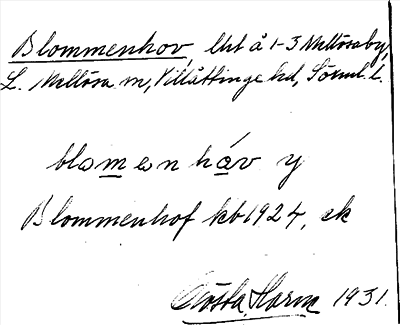 Blommenhov, lht å 1-3 Mellösa by,
L. Mellösa sn, Villåttinge hd, Söml. l.
blomenháv y
Blommenhof kb 1924, ek
Gösta Harm 1931.